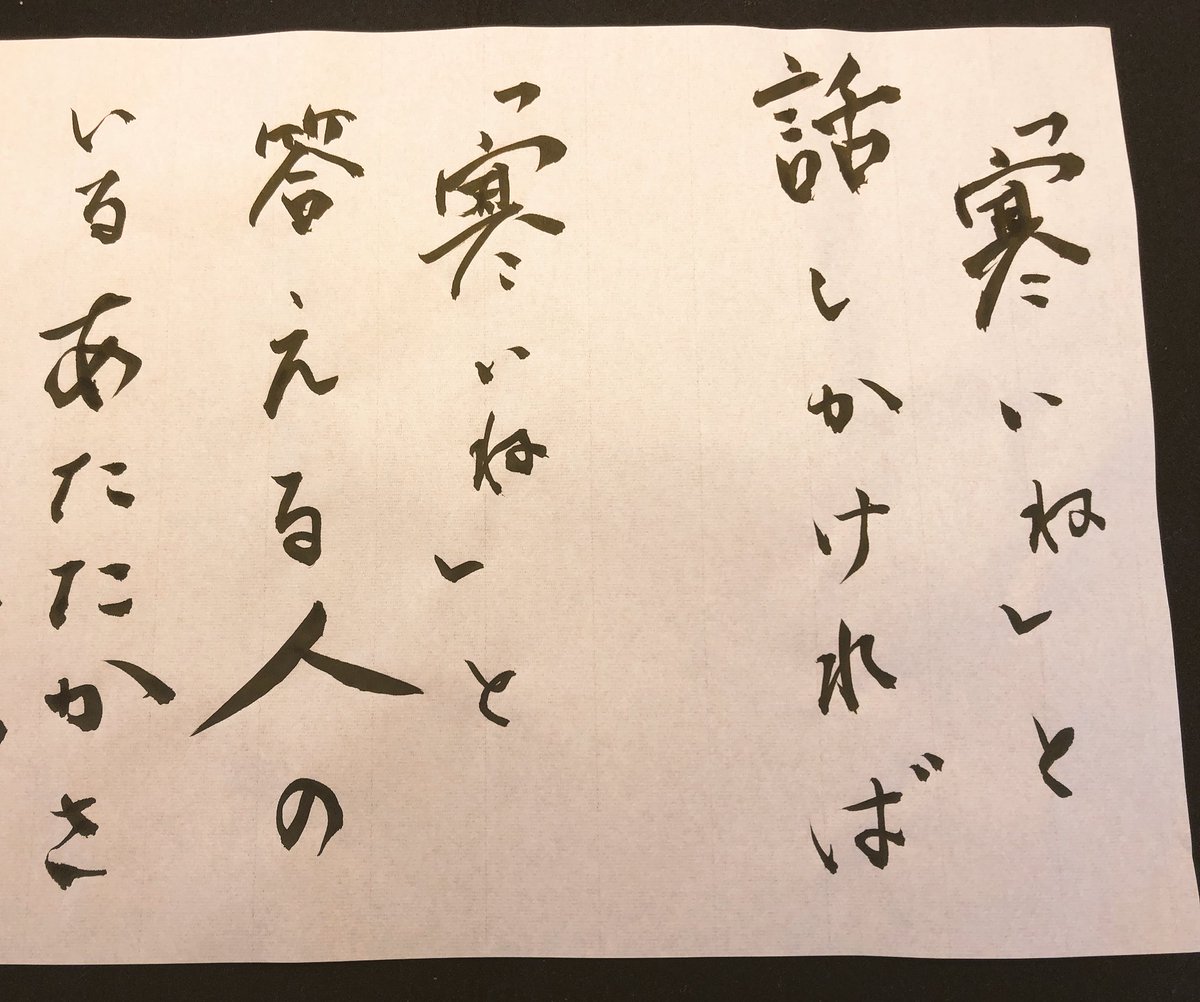 「寒いね」と
話しかければ
「寒いね」と
答える人の
いるあたたかさ